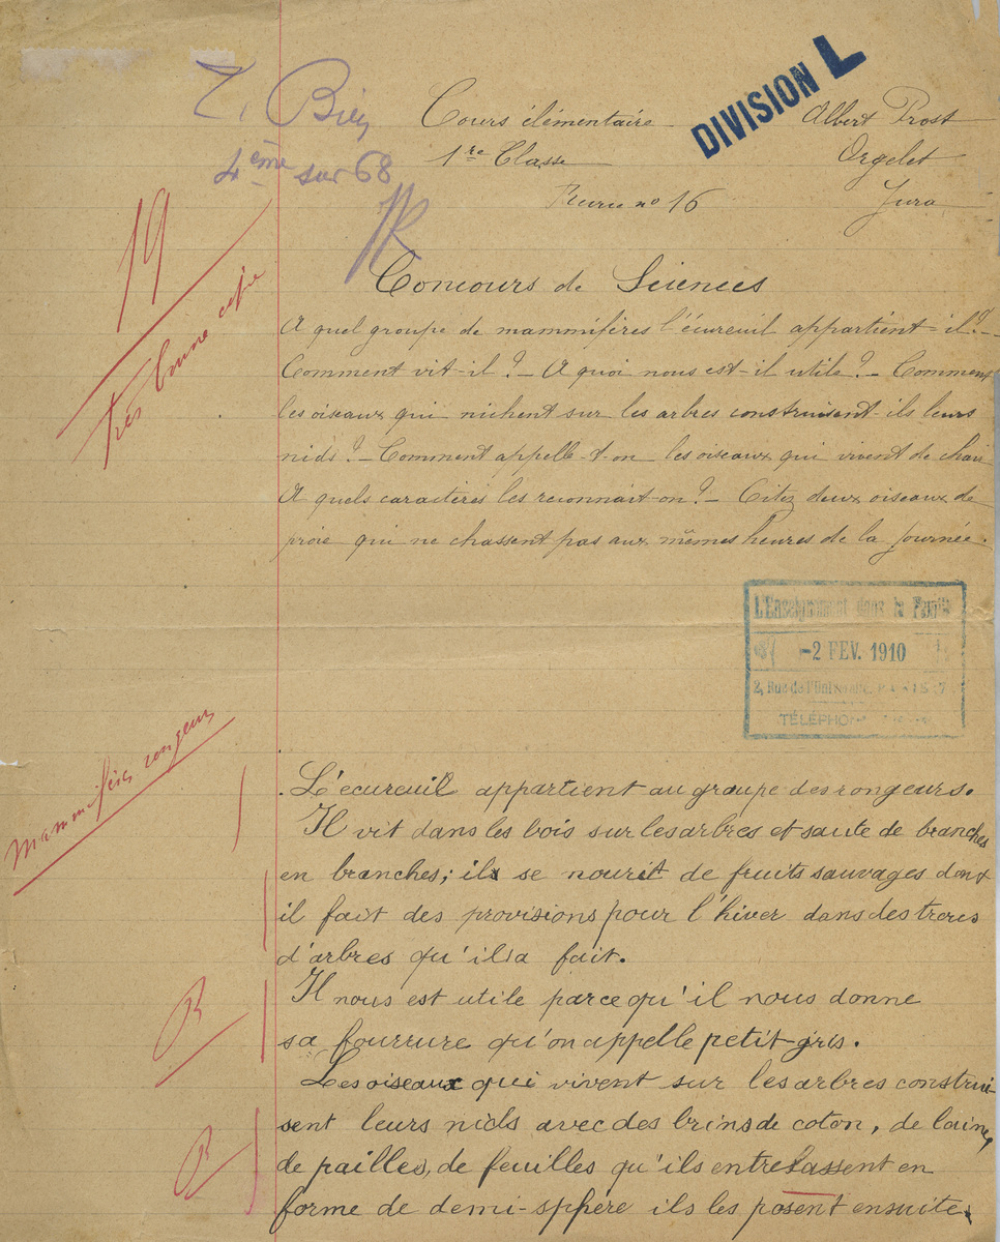 T. Bien
4ème sur 68
Cours élémentaire
1re Classe
no 16
DIVISION L
Albert Prost
Orgelet
Jura
19
Très bonne copie
Concours de Sciences
A quel groupe de mammifères l'écureuil appartient-il ?
Comment vit-il ? – A quoi nous est-il utile ? – Comment
les oiseaux qui nichent sur les arbres construisent-ils leurs
nids ? – Comment appelle-t-on les oiseaux qui vivent de chair
A quels caractères les reconnait-on ? – Citez deux oiseaux de
proie qui ne chassent pas aux mêmes heures de la journée.
L'Enseignement dans la Famille
-2 FEV. 1910
2, Rue de l'Université, PARIS 7
TÉLÉPHONE
Mammifères rongeurs
L'écureuil appartient au groupe des rongeurs.
Il vit dans les bois sur les arbres et saute de branches
en branches; il se nourit de fruits sauvages dont
il fait des provisions pour l'hiver dans des trous
d'arbres qu'il a fait.
B
Il nous est utile parce qu'il nous donne
sa fourrure qu'on appelle petit-gris.
Les oiseaux qui vivent sur les arbres construi-
sent leurs nids avec des brins de coton, de laine,
B
de pailles, de feuilles qu'ils entrelassent en
forme de demi-sphère ils les posent ensuite